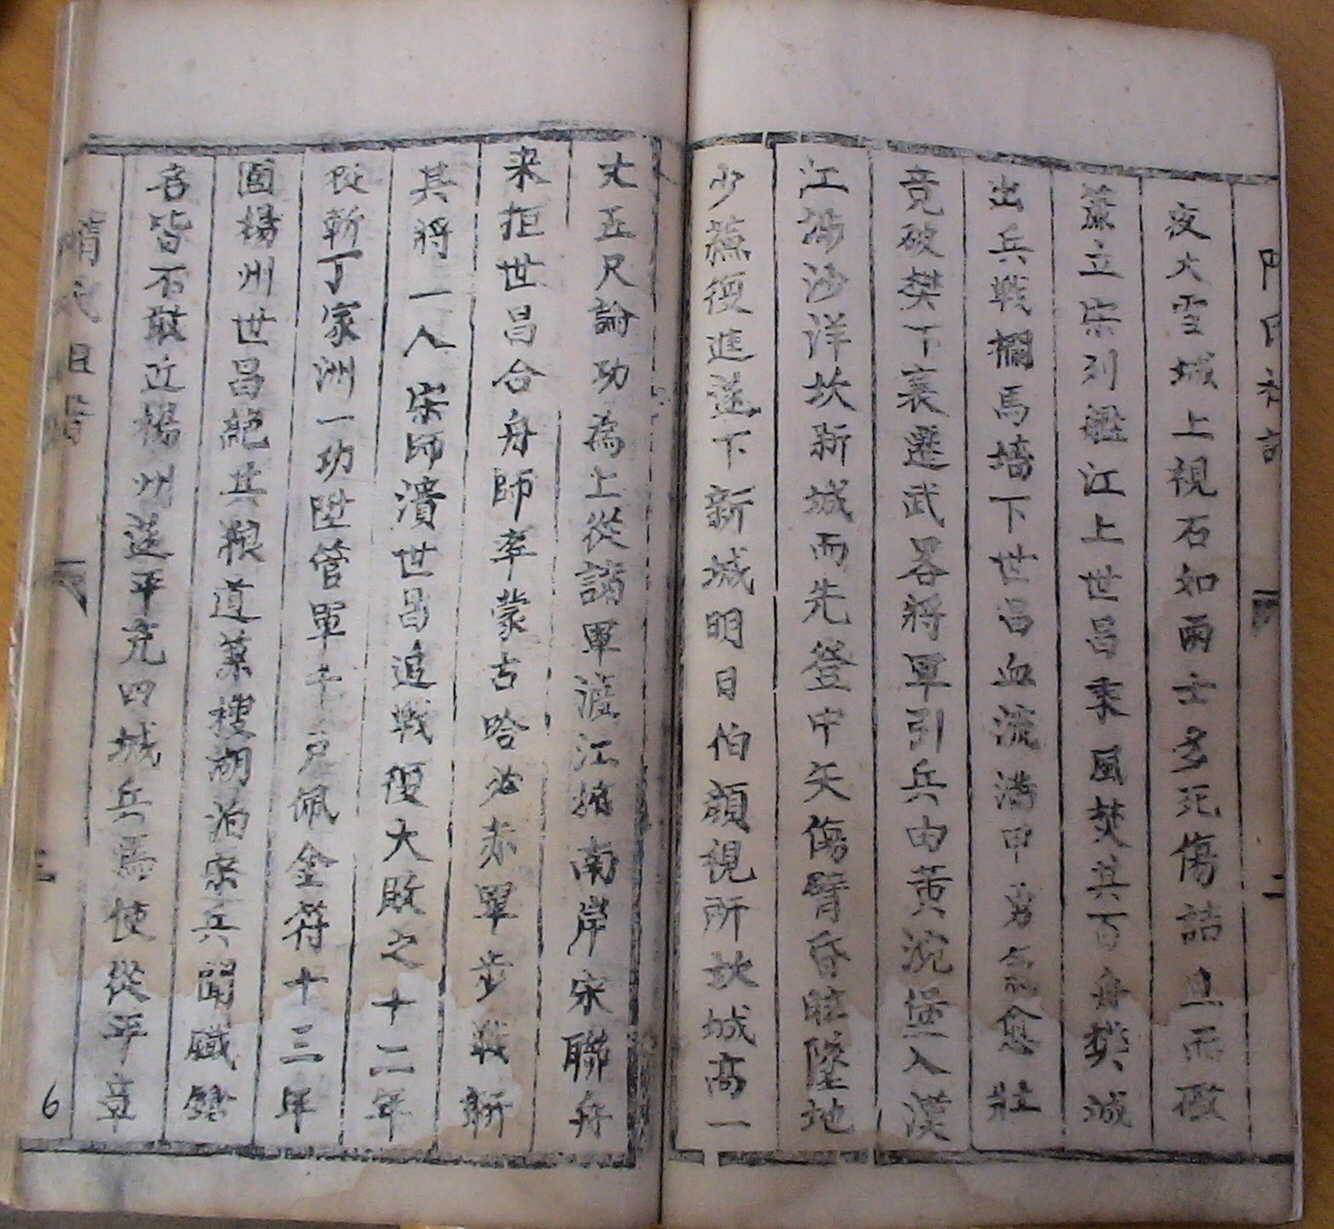 夜大雪城上視石如雨士多死傷詰旦而破
蕭立宗列艦江上世昌乘風焚其百舟樊城
出兵戰欄馬墻下世昌血流滿甲勇氣愈壯
竟破樊下襄遷武畧將軍引兵由黃涴堡入漢
江涉沙洋坎新城而先登中矢傷臂昏眩墜地
少蘓復進遂下新城明日伯顏視所坎城高一
丈五尺論功為上從諸軍渡江據南岸宋聯舟
来拒世昌合舟師孛蒙古哈必赤軍步戰斬
其將一人宋師潰世昌追戰復大敗之十二年
從斬丁家洲一功陞管軍千户佩金符十三年
圍楊州世昌絕其粮道菓樓湖泊宋兵聞職
音皆不敢近楊州送平充四城兵馬使從平章
二
三
6